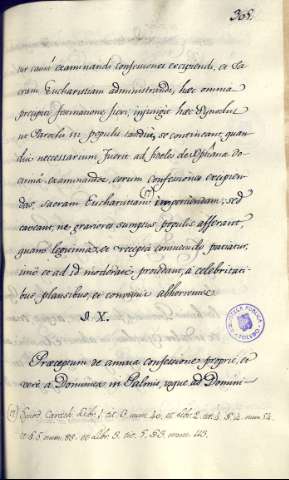 308.
tur causâ examinandi, confessiones excipiendi, et Sa-
cram Eucharistiam administrandi, hæc omnia
præcipit, hæc Synodus
ut Parochi in populis tandiu se contineant, quan-
diu necessarium fuerit ad fideles de Xptiana Doc-
trina examinandos, eorum confessiones excipien-
das, sacram Eucharistiam impertiendam; sed
caveant, ne graviores sumptus populis afferant,
quam legitima, et recepta consuetudo patiatur,
imò eo ad id moderatè procedant, à celebritati-
bus plausibus, et conviviis abhorreant.
§. X.
Præceptum de annua confessione propriè, et
verè à Dominica in Palmis, usque ad Domini-
Sinod. lib. 1. tit. 6. num. 40. et lib. 2. tit. 4. num. 54.
et lib. 3. tit. 5.
BIBLIOTECA PUBLICA
TOLEDO